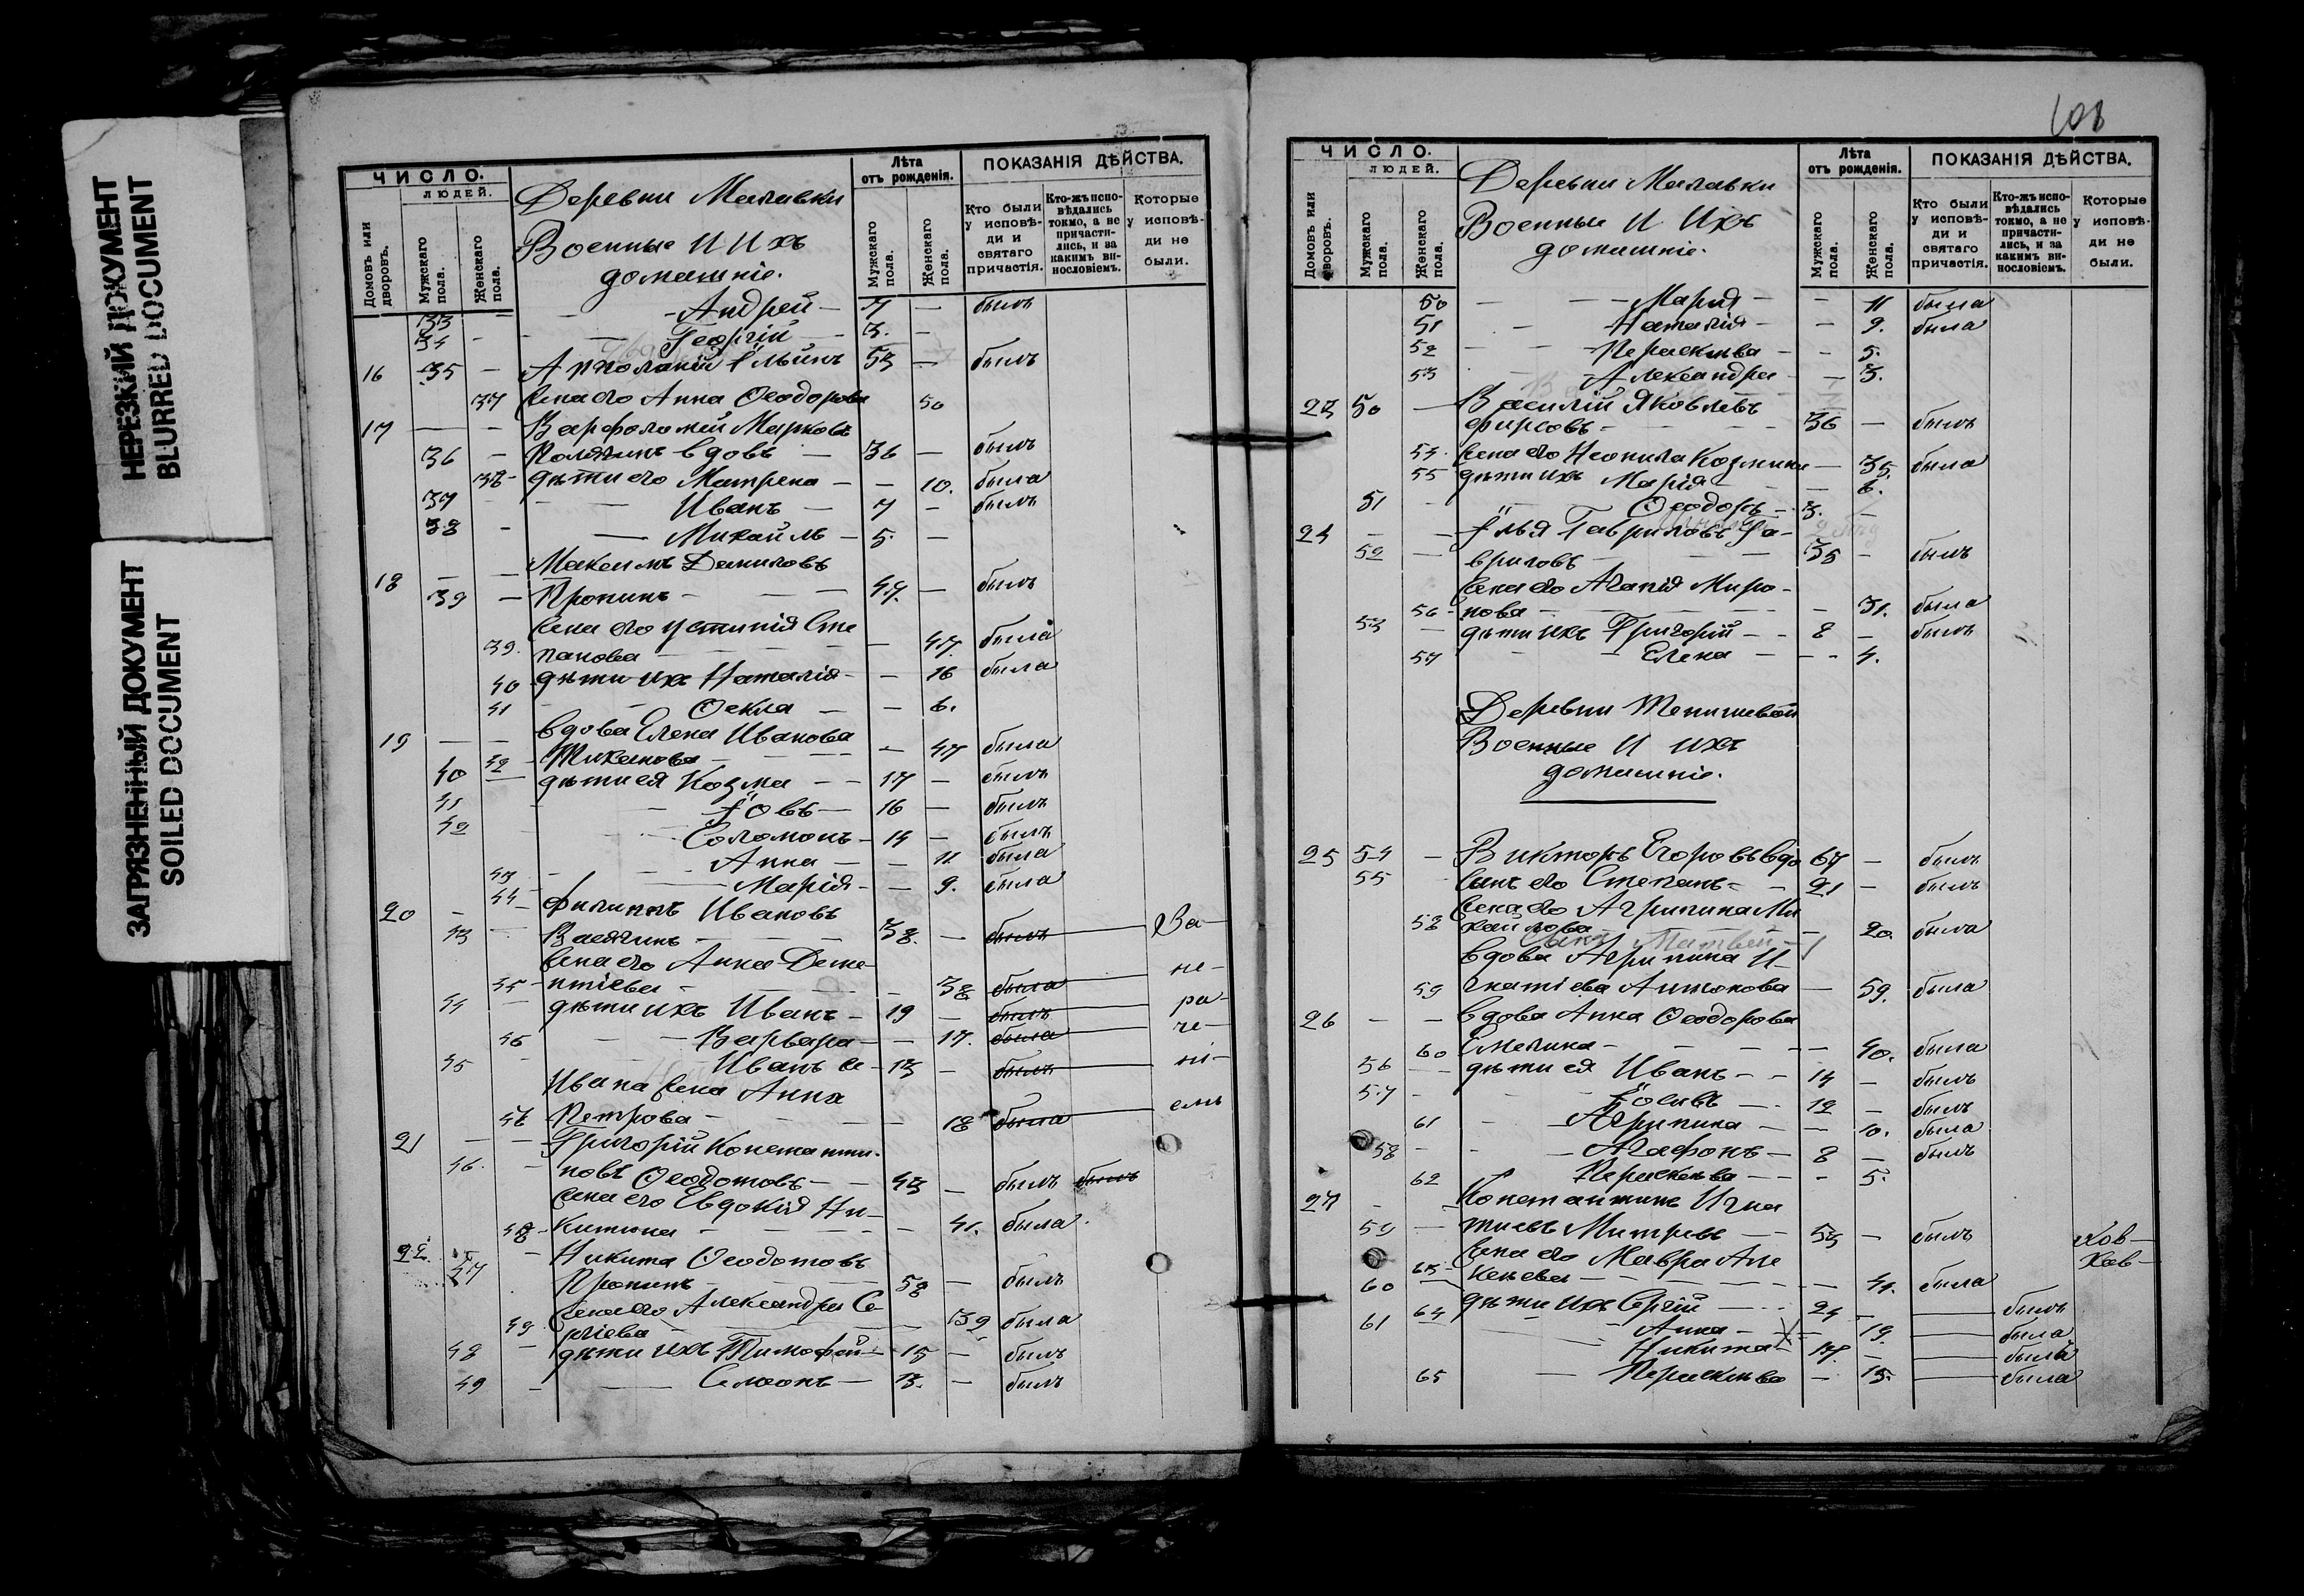 НЕРЕЗКИЙ ДОКУМЕНТ
BLURRED DOCUMENT
ЗАГРЯЗНЕННЫЙ ДОКУМЕНТ
SOILED DOCUMENT
ЧИСЛО.
ЛЮДЕЙ.
Домовъ или дворовъ.
Мужскаго пола.
Женскаго пола.
Деревни Малавки
Военные И Ихъ
домашніе.
Лѣта
отъ рожденія.
Мужскаго пола.
Женскаго пола.
ПОКАЗАНІЯ ДѢЙСТВА.
Кто были у исповѣ-ди и святаго причастія.
Кто-жъ испо-вѣдались токмо, а не причасти-лись, и за какимъ ви-нословіемъ.
Которые у исповѣ-ди не были.
33 — Андрей — 7 — былъ
34 — Георгій — 3. —
16 35 — Апполоній Ильинъ 53 — былъ
37 Жена его Анна Ѳеодорова 50
17 — — Варфоломей Марковъ
36 — вдовъ — 36 — былъ
38 - дѣти его Матрена — — 10. была
37 Иванъ — 7 — былъ
38 - Михаилъ — 5. —
18 — — Максимъ Даниловъ
39 — Пронинъ — 47. — былъ
Жена его Устинія Сте
39. панова — 47. была
40 дѣти ихъ Наталія — — 16 была
41 Ѳекла — — 6.
19 — — Вдова Елена Иванова
42 — 47 была
40 — дѣти ея Козма — — 17 — былъ
41 Іовъ — 16 — былъ
42 Соломонъ — 14 — былъ
43 Анна — — 11 была
44 Марія — — 9. была
20 - Филиппъ Ивановъ
43 — 38. — былъ За-
Жена его Анна Деме-
45 - нтіева — 38 была не-
44 — дѣти ихъ Иванъ — 19 — былъ ра-
46 Варвара — — 17. была че-
45 Иванъ — 13 — былъ ні-
Ивана жена Анна
47 Петрова — — 18 была емъ
21 — — Григорій Константи-
46. — новъ Ѳеодотовъ — — 43 — былъ былъ
Жена его Евдокія Ни-
48 - китина — — 41. была.
22 47 — Никита Ѳеодотовъ
Пронинъ — 58 — былъ
Жена его Александра Се
49 ргіева — 39 была
48 — дѣти ихъ Тимофей — 15 — былъ
49 - Симеонъ — 13. — былъ
108
ЧИСЛО.
ЛЮДЕЙ.
Домовъ или дворовъ.
Мужскаго пола.
Женскаго пола.
Деревни Малавки
Военные И Ихъ
домашніе.
Лѣта
отъ рожденія.
Мужскаго пола.
Женскаго пола.
ПОКАЗАНІЯ ДѢЙСТВА.
Кто были у исповѣ-ди и святаго причастія.
Кто-жъ испо-вѣдались токмо, а не причасти-лись, и за какимъ ви-нословіемъ.
Которые у исповѣ-ди не были.
50 — Марія — — 11 была
51 - Наталія — — 9. была
52 — Параскева — - 5.
53 - Александра — — 3.
23 50 — Василій Яковлевъ
Фирсовъ — 36 — былъ
54. Жена его Неонила Козмина — 35. была
55 дѣти ихъ Марія — 6.
51 - Ѳеодоръ — 3. —
24 — — Илья Гавриловъ Га-
52 — вриловъ — 35 — былъ
Жена его Агапія Миро-
56 - нова — — 31. была
53 — дѣти ихъ Григорій — - 8 — былъ
57 Елена — — - 4.
Деревни Тенишевой
Военные И ихъ
домашніе.
25 54 — Викторъ Егоровъ вдо 67 — былъ
55 Сынъ его Степанъ — - 21 — былъ
Жена его Агрипина Ми
58 хайлова — — 20. была
Матвей — 1
Вдова Агрипина И-
59 гнатіева Антонова — 59. была
26 — — Вдова Анна Ѳеодорова
60 Емелина — — 40. была
56 — дѣти ея Иванъ — - 14 — былъ
57 - Іосифъ — 12 — былъ
61 - Агрипина — — 10. была
58 — Агафонъ — 8 — былъ
62 Параскева — — - 5.
27 - - Константинъ Игна
59 — тьевъ Митревъ — 53 — былъ
Жена его Мавра Але
63 ксѣева — — 41. была
60 дѣти ихъ Сергій — 24 — былъ
61 64 Анна — — 19. — была
Никита — 17. — былъ
65 — Параскева — 15. — была